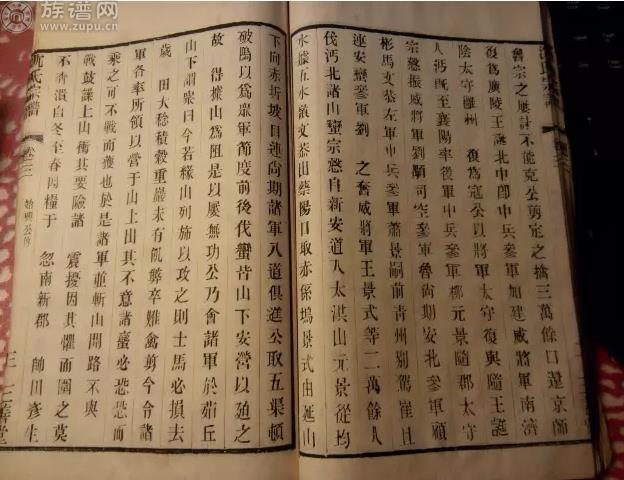 族谱网
www.zupu.cn
魯宗之屢討不能克公剪定之擒三萬餘口還京師
復爲廣陵王誕北中郎中兵參軍加建威將軍南濟
陰太守雍州 復爲寇公以將軍太守復與隨王誕
入沔既至襄陽率後軍中兵參軍柳元景隨郡太守
宗慤振威將軍劉顒司空參軍魯尚期安北參軍顧
彬馬文恭左軍中兵參軍蕭景嗣前青州別駕崔目
連安蠻參軍劉 之奮威將軍王景式等二萬餘人
伐沔北諸山蠻宗慤自新安道入太洪山元景從均
水據五水嶺文恭出蔡陽口取赤係塢景式由延山
下向赤圻坡目連尚期諸軍八道俱進公取五渠頓
破隝以爲眾軍節度前後伐蠻皆山下安營以廹之
故 得據山爲阻是以屢無功公乃會諸軍於茹丘
山下謂眾曰今若緣山列斾以攻之則士馬必損去
歲 田大稔積穀重巖未有飢弊卒難禽剪今令諸
軍各率所領以營于山上出其不意諸蠻必恐恐而
乘之可不戰而獲也於是諸軍並斬山開路不與
戰鼓譟上山衝其要險諸 震擾因其懼而圍之莫
不奔潰自冬至春因糧于 忽南新郡 帥田彥生
沈氏宗譜 卷三 始興公傳 三